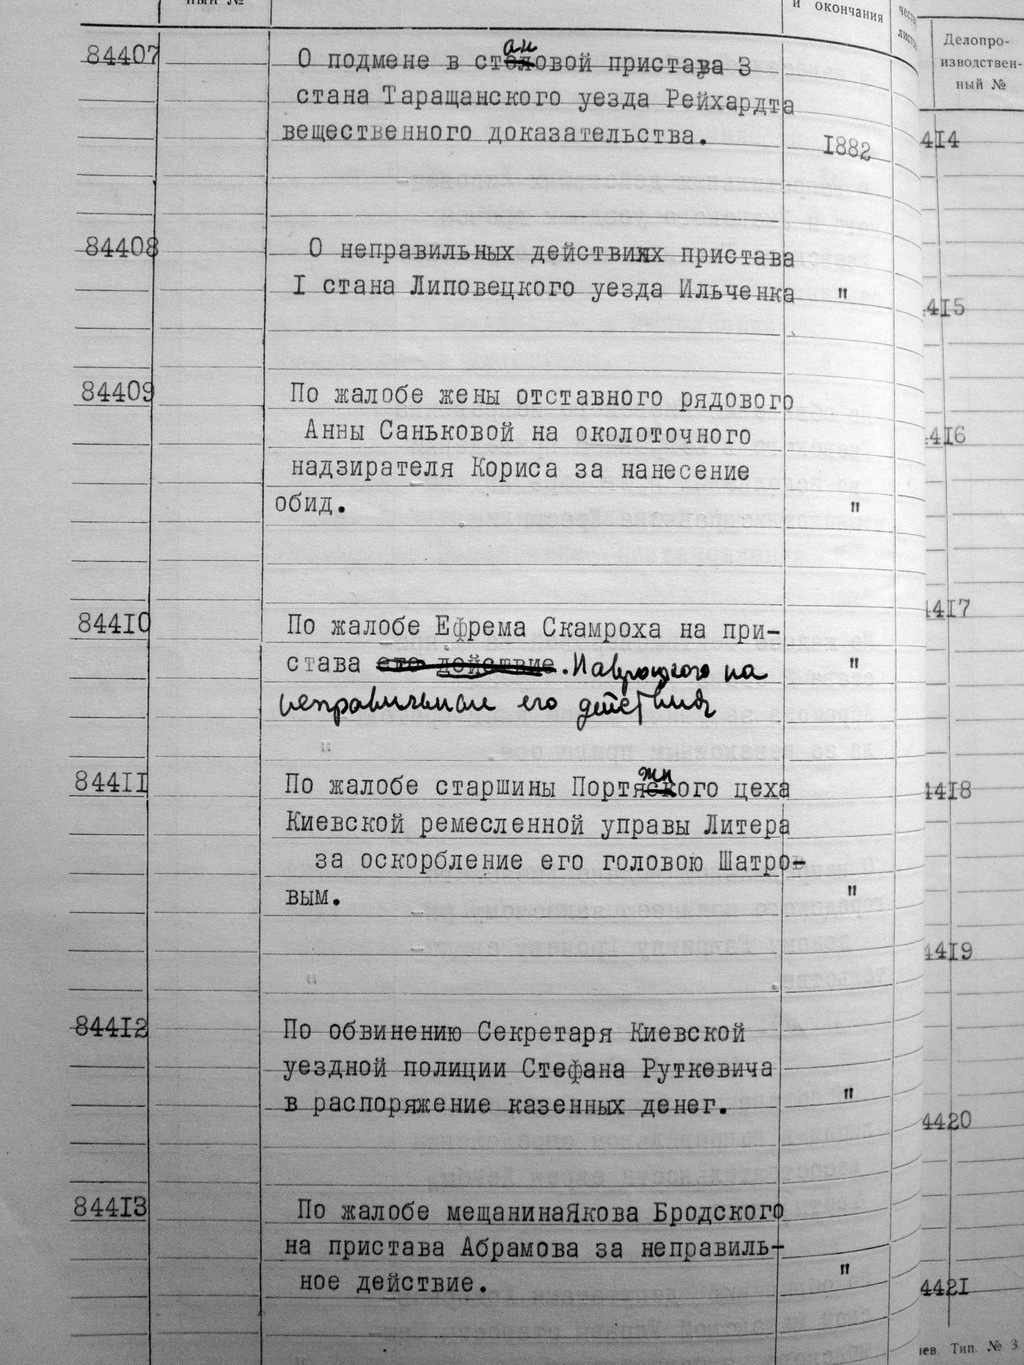 ный №
и окончания
Делопро-
изводствен-
ный №
84407
О подмене в становой пристава 3
стана Таращанского уезда Рейхардта
вещественного доказательства.
I882
84408
О неправильных действиях пристава
I стана Липовецкого уезда Ильченка "
84409
По жалобе жены отставного рядового
Анны Саньковой на околоточного
надзирателя Кориса за нанесение
обид. "
844I0
По жалобе Ефрема Скамроха на при-
става его действие. Навроцкого на "
неправильные его действия
"
844II
По жалобе старшины Портяжного цеха
Киевской ремесленной управы Литера
за оскорбление его головою Шатро-
вым. "
"
844I2
По обвинению Секретаря Киевской
уездной полиции Стефана Руткевича
в распоряжение казенных денег. "
844I3
По жалобе мещанинаЯкова Бродского
на пристава Абрамова за неправиль-
ное действие. "
4I4
4I5
4I6
4I7
44I8
44I9
4420
442I
Тип. № 3